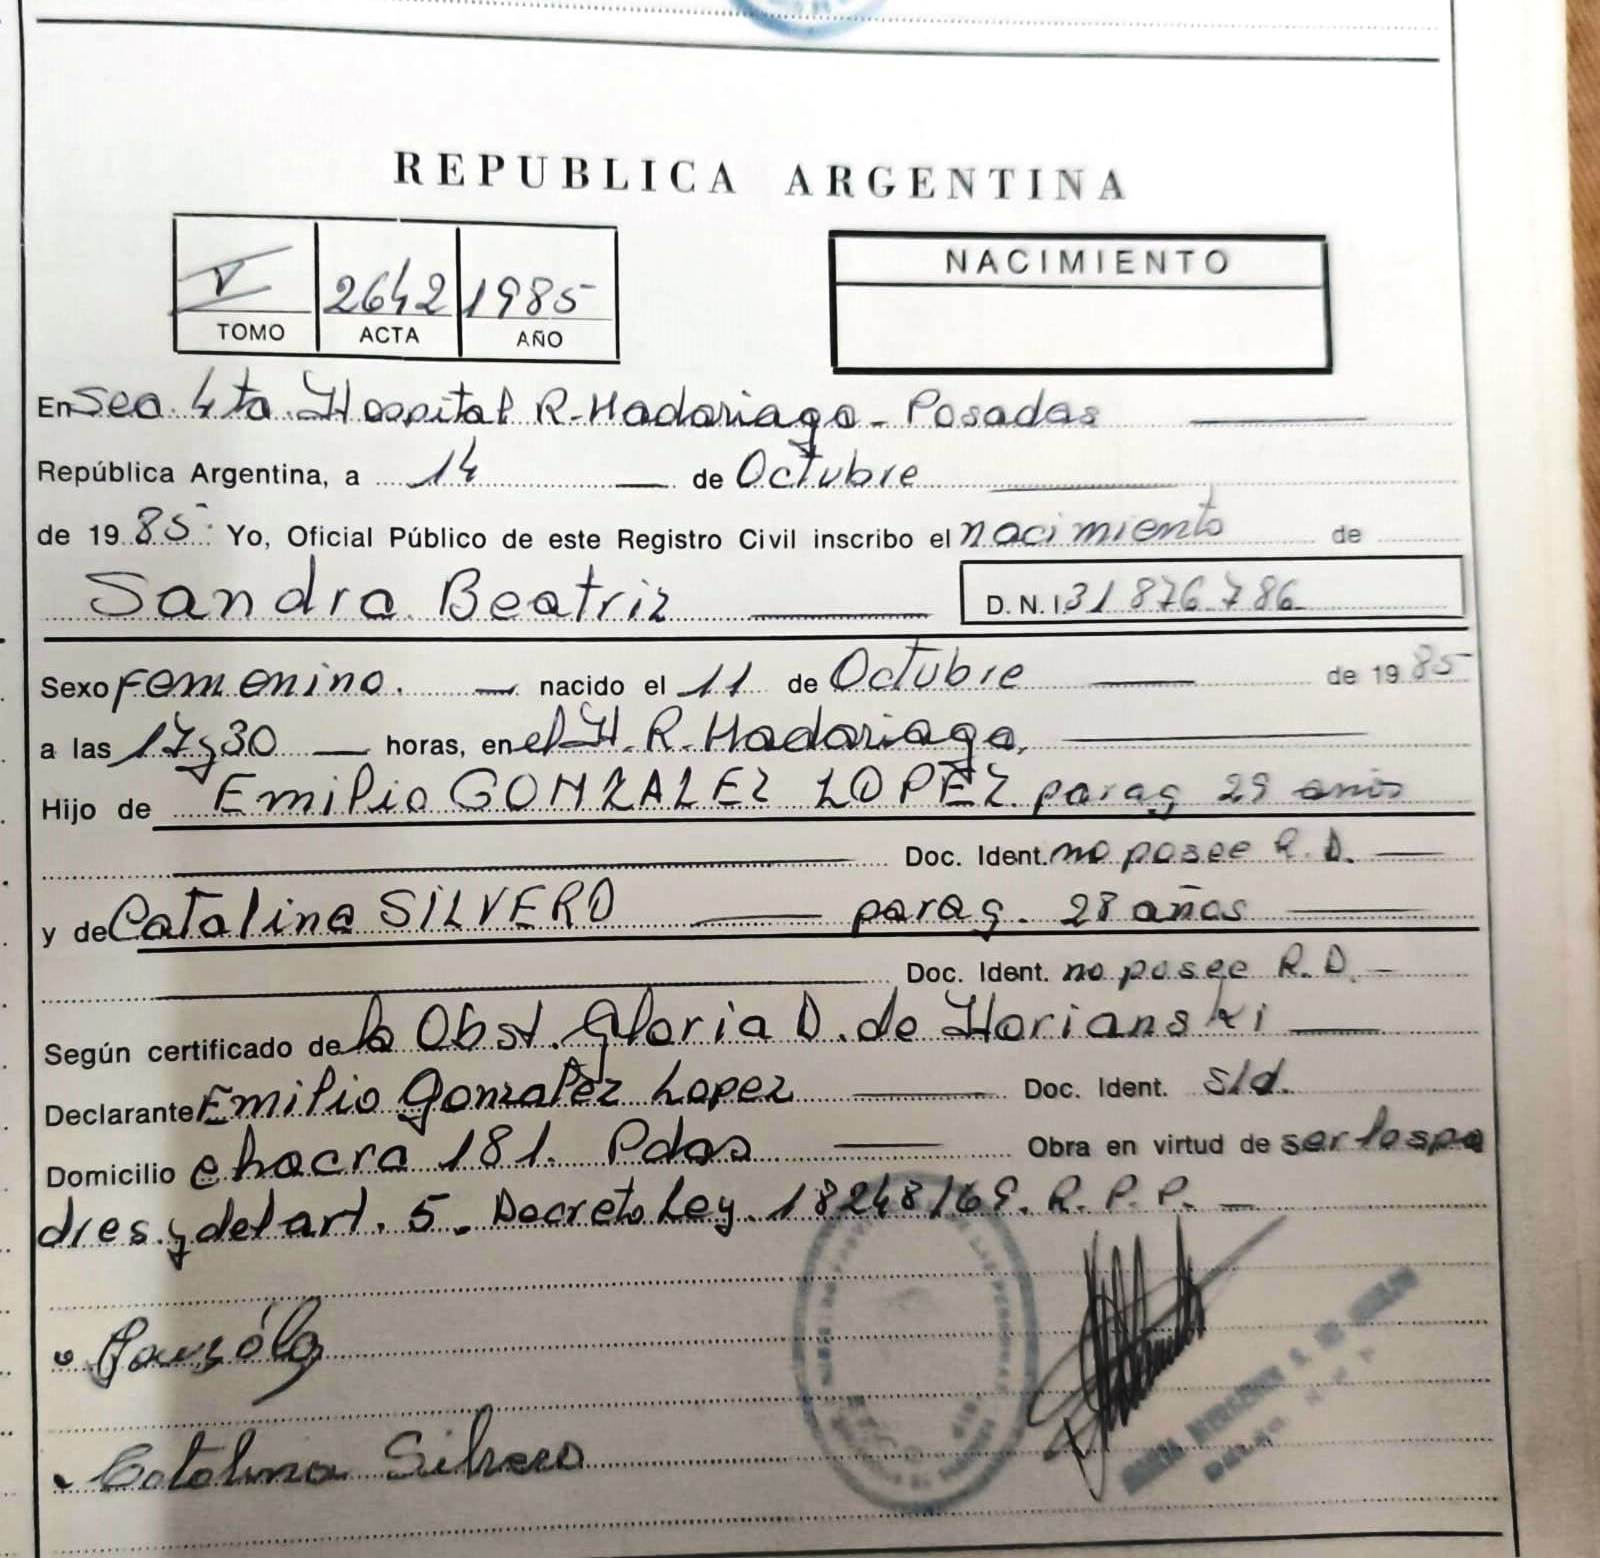 REPUBLICA ARGENTINA
V 2642 1985
TOMO ACTA AÑO
NACIMIENTO
En Sec. 4ta. Hospital R. Madariaga - Posadas
República Argentina, a 14 de Octubre
de 1985. Yo, Oficial Público de este Registro Civil inscribo el nacimiento de
Sandra Beatriz D. N. I. 31 876 786
Sexo femenino. nacido el 11 de Octubre de 1985
a las 17 y 30 horas, en el H. R. Madariaga,
Hijo de Emilio GONZALEZ LOPEZ parag 29 años
Doc. Ident. no posee R. D.
y de Catalina SILVERO parag. 28 años
Doc. Ident. no posee R. D.
Según certificado de la Obst. Gloria D. de Horianski
Declarante Emilio Gonzalez Lopez Doc. Ident. s/d.
Domicilio chacra 181. Pdas Obra en virtud de ser los pa
dres y del art. 5. Decreto Ley. 18248/69. R. P. P.
Catalina Silvero